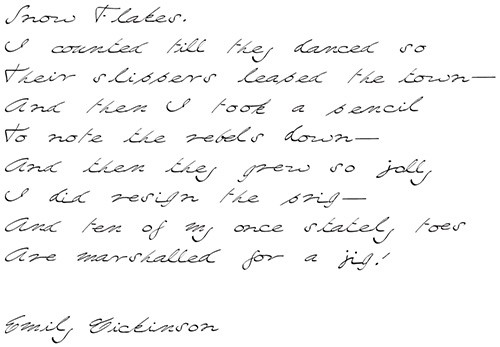 Snow Flakes.
I counted till they danced so
Their slippers leaped the town—
And then I took a pencil
To note the rebels down—
And then they grew so jolly
I did resign the prig—
And ten of my once stately toes
Are marshalled for a jig!
Emily Dickinson